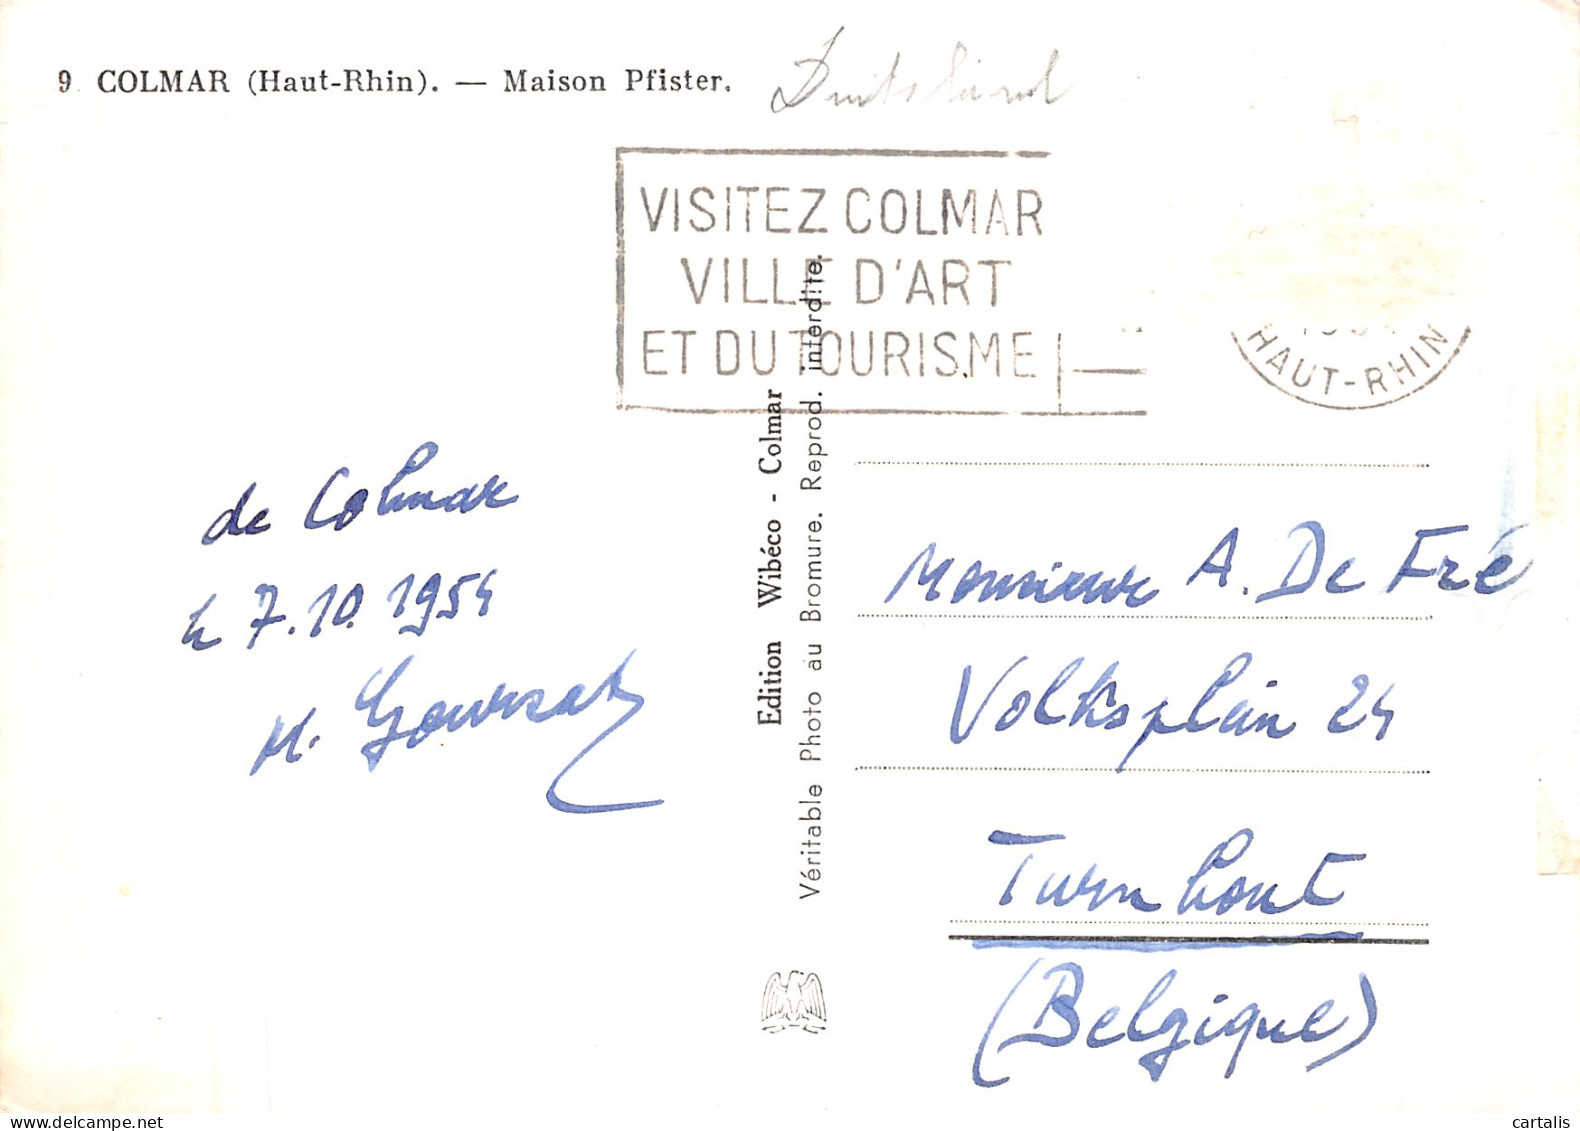 9 COLMAR (Haut-Rhin). — Maison Pfister.
Duitsland
VISITEZ COLMAR
VILLE D'ART
ET DU TOURISME
HAUT-RHIN
Edition Wibéco - Colmar
Véritable Photo au Bromure. Reprod. interdite.
de Colmar
le 7.10.1954
M. Goursat
Monsieur A. De Fré
Volksplein 24
Turnhout
(Belgique)
cartalis